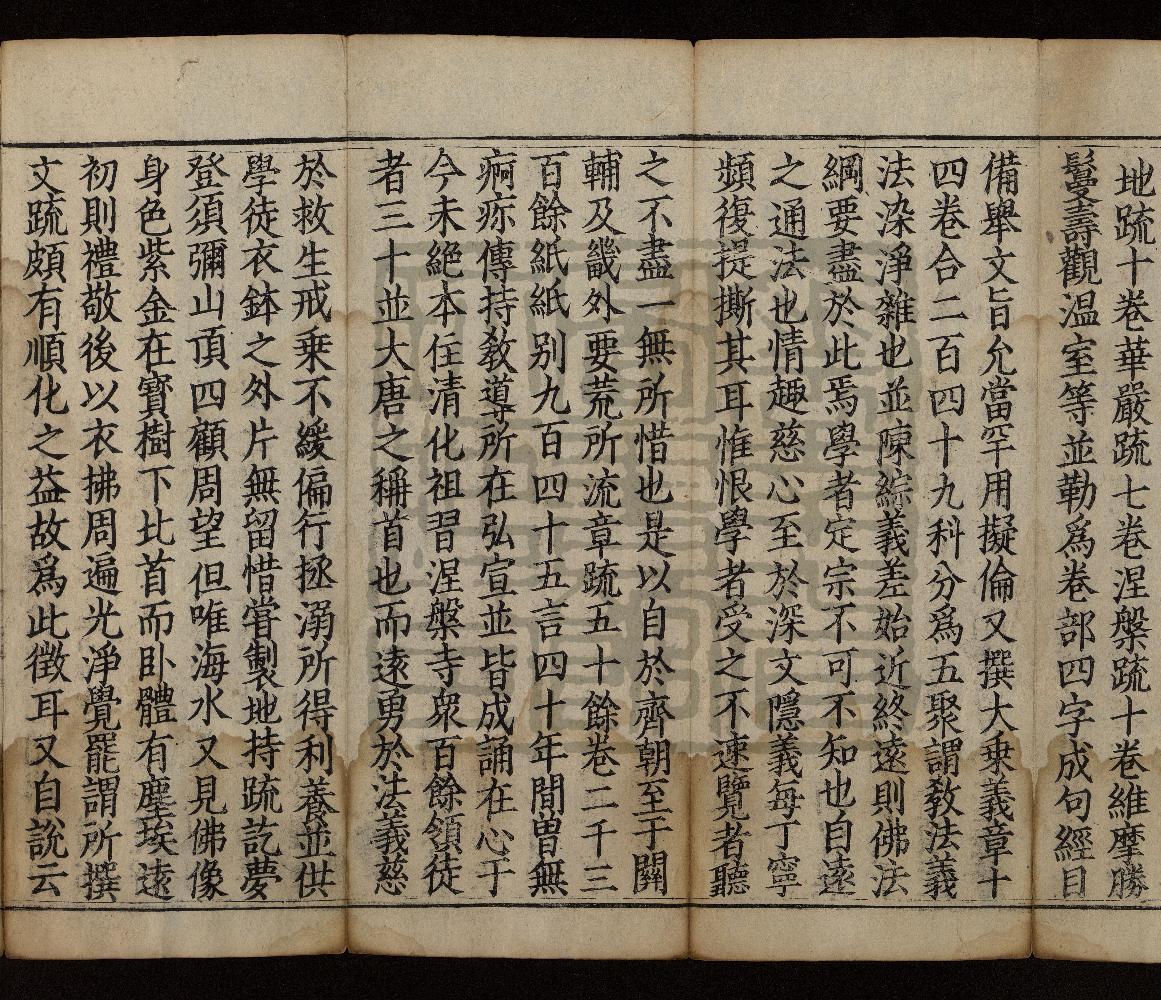 地疏十卷華嚴疏七卷涅槃疏十卷維摩勝
鬘壽觀温室等並勒爲卷部四字成句經目
備舉文旨允當罕用擬倫又撰大乘義章十
四卷合二百四十九科分爲五聚謂教法義
法染淨雜也並陳綜義差始近終遠則佛法
綱要盡於此焉學者定宗不可不知也自遠
之通法也情趣慈心至於深文隱義每丁寧
頻復提撕其耳惟恨學者受之不速覽者聽
之不盡一無所惜也是以自於齊朝至于關
輔及畿外要荒所流章疏五十餘卷二千三
百餘紙紙别九百四十五言四十年間曾無
痾疹傳持教導所在弘宣並皆成誦在心于
今未絶本住清化祖習涅槃寺衆百餘領徒
者三十並大唐之稱首也而遠勇於法義慈
於救生戒乗不緩偏行拯溺所得利養並供
學徒衣鉢之外片無留惜嘗製地持疏訖夢
登須彌山頂四顧周望但唯海水又見佛像
身色紫金在寳樹下比首而卧體有塵埃遠
初則禮敬後以衣拂周遍光淨覺罷謂所撰
文疏頗有順化之益故爲此徵耳又自説云